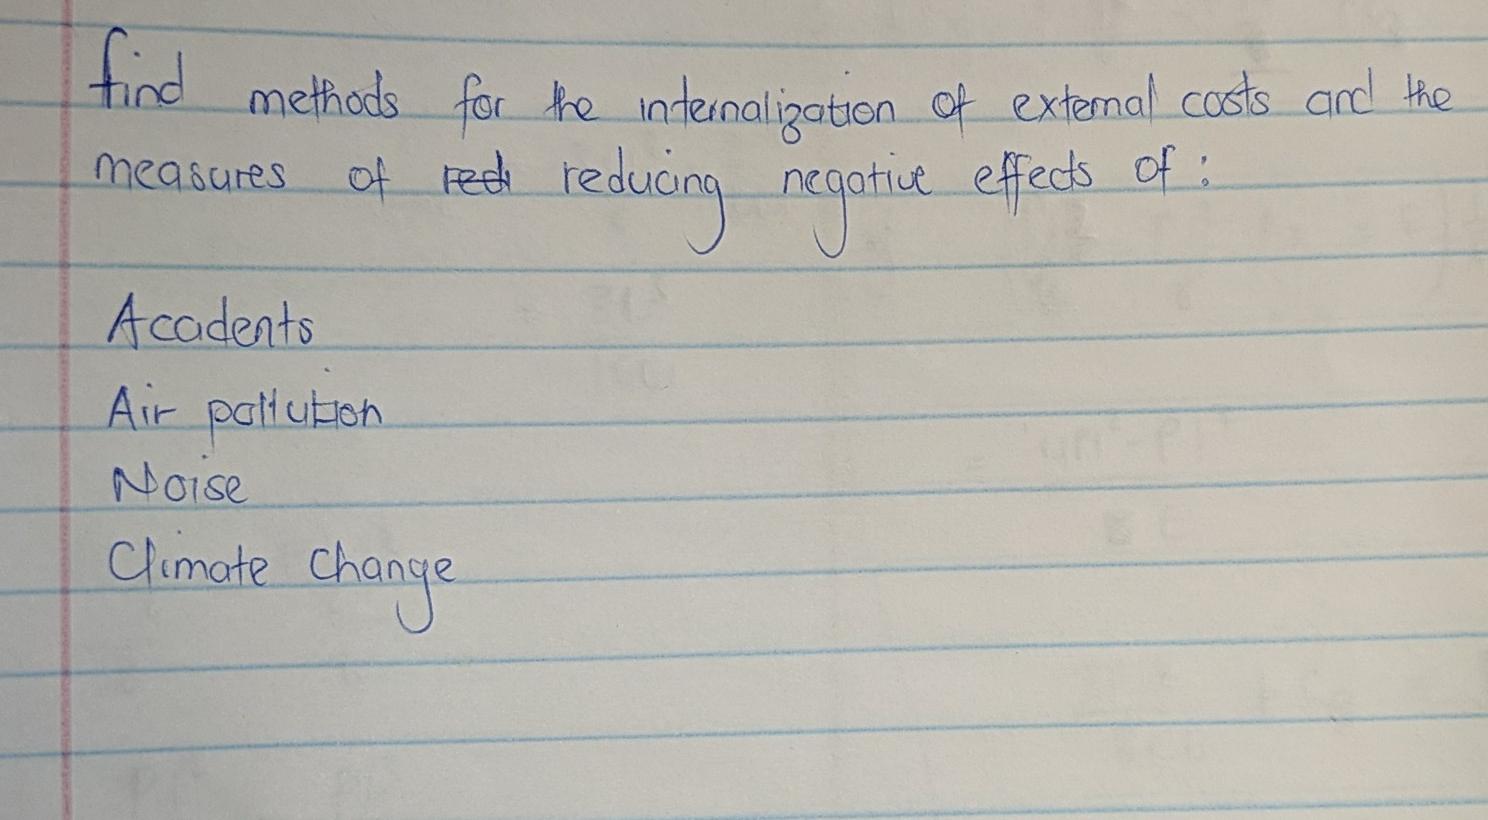 find methods for the internalization of external costs and the
measures of red reducing negative effects of :
Acadents
Air pollution
Noise
Climate change